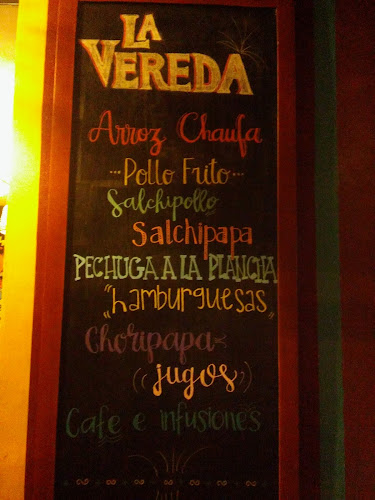 LA
VEREDA
Arroz Chaufa
...Pollo Frito...
Salchipollo
Salchipapa
PECHUGA A LA PLANCHA
"hamburguesas"
Choripapa
((jugos))
Cafe e infusiones